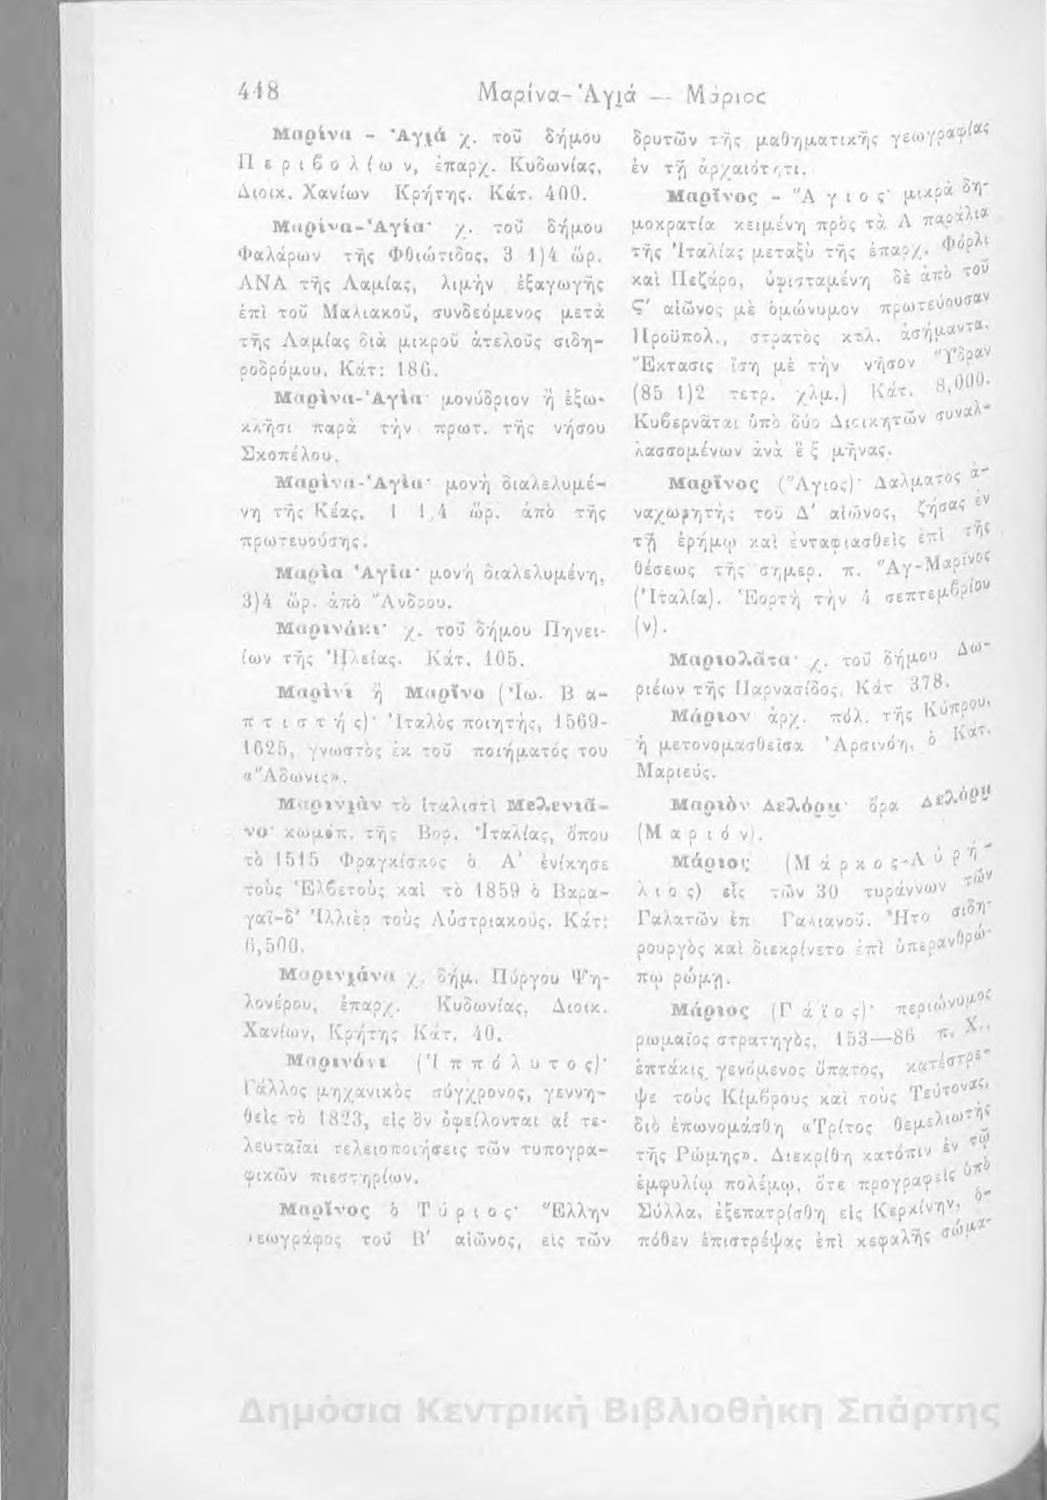 448 Μαρίνα-Ἁγιά — Μάριος
Μαρίνα - Ἁγιά χ. τοῦ δήμου
Περιβολίων, ἐπαρχ. Κυδωνίας,
Διοικ. Χανίων Κρήτης. Κάτ. 400.
Μαρίνα-Ἁγία· χ. τοῦ δήμου
Φαλάρων τῆς Φθιώτιδος, 3 1)4 ὥρ.
ΑΝΑ τῆς Λαμίας, λιμὴν ἐξαγωγῆς
ἐπὶ τοῦ Μαλιακοῦ, συνδεόμενος μετὰ
τῆς Λαμίας διὰ μικροῦ ἀτελοῦς σιδη-
ροδρόμου. Κάτ: 186.
Μαρίνα-Ἁγία· μονύδριον ἢ ἐξω-
κλῆσι παρὰ τὴν πρωτ. τῆς νήσου
Σκοπέλου.
Μαρίνα-Ἁγία· μονὴ διαλελυμέ-
νη τῆς Κέας, 1 1)4 ὥρ. ἀπὸ τῆς
πρωτευούσης.
Μαρία Ἁγία· μονὴ διαλελυμένη,
3)4 ὥρ. ἀπὸ Ἄνδρου.
Μαρινάκι· χ. τοῦ δήμου Πηνει-
ίων τῆς Ἠλείας. Κάτ. 105.
Μαρίνι ἢ Μαρῖνο (Ἰω. Βα-
πτιστής)· Ἰταλὸς ποιητής, 1569-
1625, γνωστὸς ἐκ τοῦ ποιήματός του
«Ἄδωνις».
Μαρινιὰν τὸ ἰταλιστὶ Μελενιᾶ-
νο· κωμόπ. τῆς Βορ. Ἰταλίας, ὅπου
τὸ 1515 Φραγκίσκος ὁ Α′ ἐνίκησε
τοὺς Ἑλβετοὺς καὶ τὸ 1859 ὁ Βαρα-
γαῖ-δ' Ἰλλιὲρ τοὺς Αὐστριακούς. Κάτ:
6,500.
Μαρινιάνα χ. δήμ. Πύργου Ψη-
λονέρου, ἐπαρχ. Κυδωνίας, Διοικ.
Χανίων, Κρήτης Κάτ. 40.
Μαρινόνι (Ἱππόλυτος)·
Γάλλος μηχανικὸς σύγχρονος, γεννη-
θεὶς τὸ 1823, εἰς ὃν ὀφείλονται αἱ τε-
λευταῖαι τελειοποιήσεις τῶν τυπογρα-
φικῶν πιεστηρίων.
Μαρῖνος ὁ Τύριος· Ἕλλην
γεωγράφος τοῦ Β′ αἰῶνος, εἷς τῶν
δρυτῶν τῆς μαθηματικῆς γεωγραφίας
ἐν τῇ ἀρχαιότητι.
Μαρῖνος - Ἅγιος· μικρὰ δη-
μοκρατία κειμένη πρὸς τὰ Α παράλια
τῆς Ἰταλίας μεταξὺ τῆς ἐπαρχ. Φόρλι
καὶ Πεζάρο, ὑφισταμένη δὲ ἀπὸ τοῦ
Ϛ′ αἰῶνος μὲ ὁμώνυμον πρωτεύουσαν
Προϋπολ., στρατὸς κτλ. ἀσήμαντα.
Ἔκτασις ἴση μὲ τὴν νῆσον Ὕδραν
(85 1)2 τετρ. χλμ.) Κάτ. 8,000.
Κυβερνᾶται ὑπὸ δύο Διοικητῶν συναλ-
λασσομένων ἀνὰ ἓξ μῆνας.
Μαρῖνος (Ἅγιος)· Δαλματὸς ἀ-
ναχωρητὴς τοῦ Δ′ αἰῶνος, ζήσας ἐν
τῇ ἐρήμῳ καὶ ἐνταφιασθεὶς ἐπὶ τῆς
θέσεως τῆς σημερ. π. Ἁγ-Μαρῖνος
(Ἰταλία). Ἑορτὴ τὴν 4 σεπτεμβρίου
(ν).
Μαριολᾶτα· χ. τοῦ δήμου Δω-
ριέων τῆς Παρνασίδος, Κάτ 378.
Μάριον· ἀρχ. πόλ. τῆς Κύπρου,
ἡ μετονομασθεῖσα Ἀρσινόη, ὁ Κάτ.
Μαριεύς.
Μαριὸν Δελόρμ· ὅρα Δελόρμ
(Μαριόν).
Μάριος (Μάρκος-Αὐρή-
λιος) εἷς τῶν 30 τυράννων τῶν
Γαλατῶν ἐπὶ Γαλιανοῦ. Ἦτο σιδη-
ρουργὸς καὶ διεκρίνετο ἐπὶ ὑπερανθρώ-
πῳ ρώμῃ.
Μάριος (Γάϊος)· περιώνυμος
ρωμαῖος στρατηγός, 153—86 π. Χ.,
ἑπτάκις γενόμενος ὕπατος, κατέστρε-
ψε τοὺς Κίμβρους καὶ τοὺς Τεύτονας,
διὸ ἐπωνομάσθη «Τρίτος θεμελιωτὴς
τῆς Ρώμης». Διεκρίθη κατόπιν ἐν τῷ
ἐμφυλίῳ πολέμῳ, ὅτε προγραφεὶς ὑπὸ
Σύλλα, ἐξεπατρίσθη εἰς Κερκίνην, ὁ-
πόθεν ἐπιστρέψας ἐπὶ κεφαλῆς σώμα-
Δημόσια Κεντρική Βιβλιοθήκη Σπάρτης